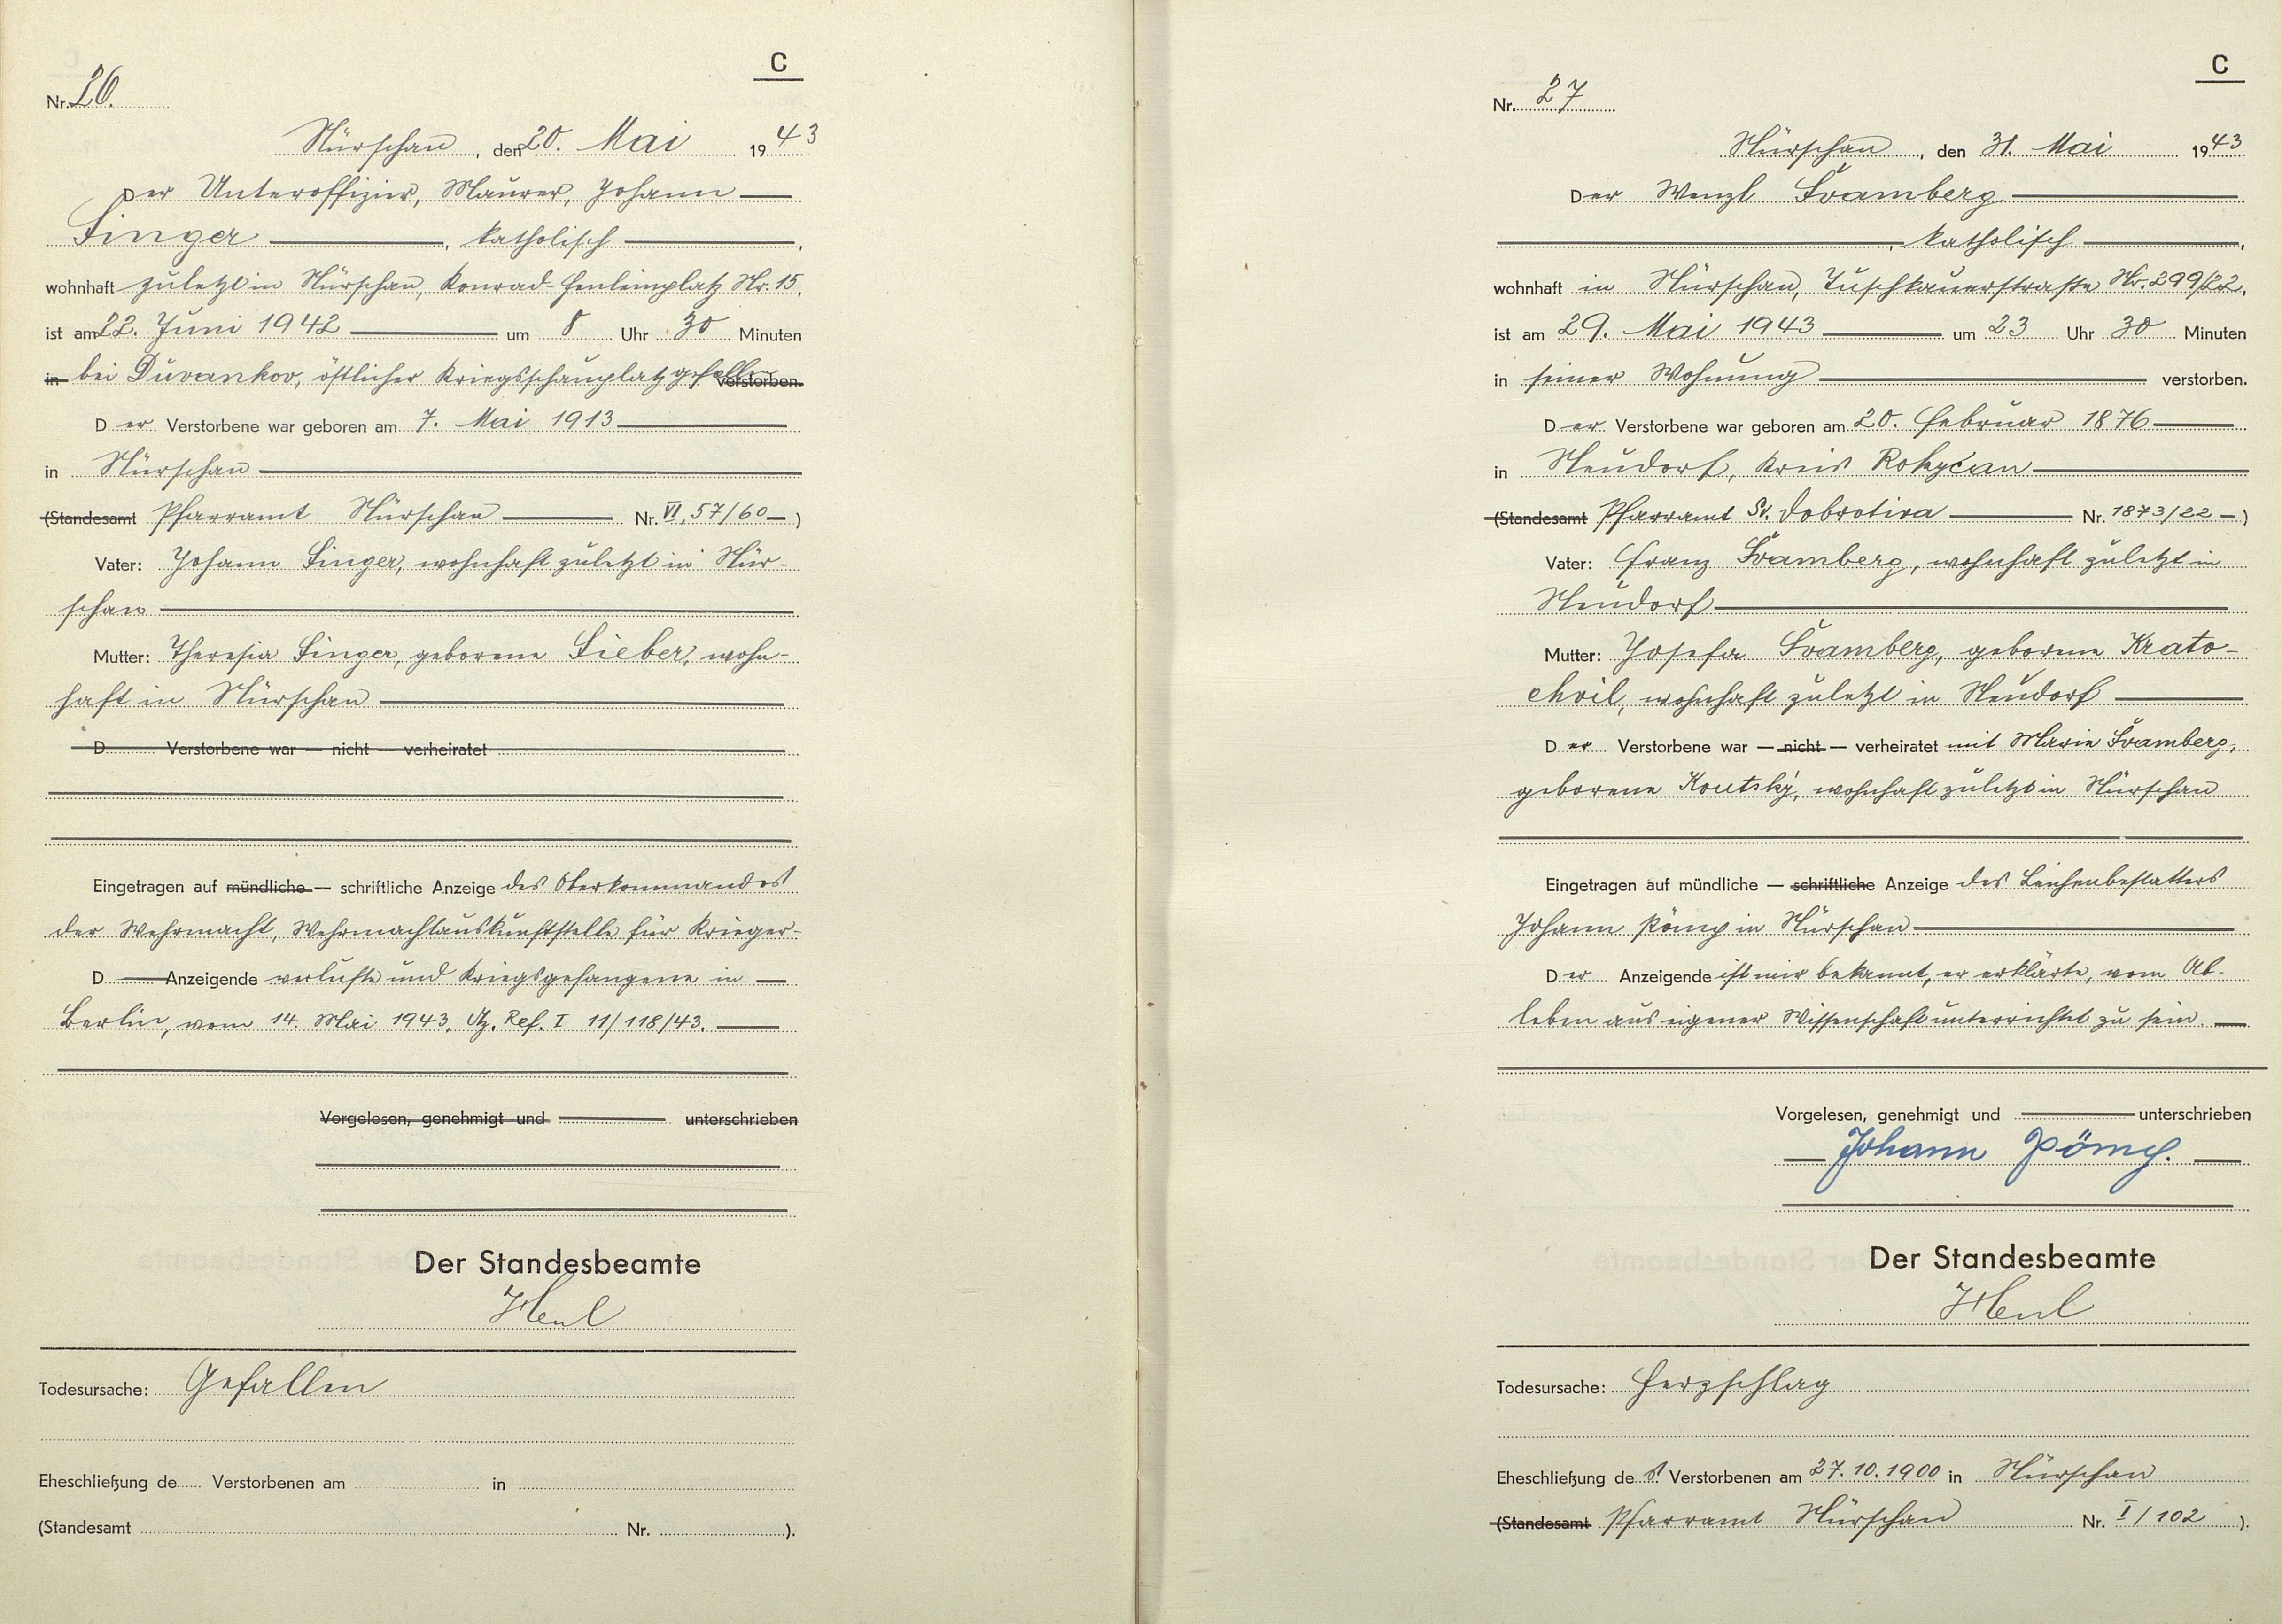 C
Nr. 26.
Nürschan, den 20. Mai 1943
Der Unteroffizier, Maurer, Johann
Singer, katholisch,
wohnhaft zuletzt in Nürschan, Konrad-Henleinplatz Nr. 15,
ist am 22. Juni 1942 um 8 Uhr 30 Minuten
in bei Duvankov, östlicher Kriegsschauplatz gefallen verstorben.
Der Verstorbene war geboren am 7. Mai 1913
in Nürschan
(Standesamt Pfarramt Nürschan Nr. VI, 57/60 — )
Vater: Johann Singer, wohnhaft zuletzt in Nür-
schan
Mutter: Theresia Singer, geborene Sieber, wohn-
haft in Nürschan
D Verstorbene war — nicht — verheiratet
Eingetragen auf mündliche — schriftliche Anzeige des Oberkommandos
der Wehrmacht, Wehrmachtauskunftstelle für Krieger-
D Anzeigende verluste und Kriegsgefangene in
Berlin, vom 14. Mai 1943, Az. Ref. I 11/118/43.
Vorgelesen, genehmigt und unterschrieben
Der Standesbeamte
Henl
Todesursache: Gefallen
Eheschließung de Verstorbenen am in
(Standesamt Nr. ).
C
Nr. 27
Nürschan, den 31. Mai 1943
Der Wenzl Švamberg
, katholisch,
wohnhaft in Nürschan, Tuschkauerstraße Nr. 299/22,
ist am 29. Mai 1943 um 23 Uhr 30 Minuten
in seiner Wohnung verstorben.
Der Verstorbene war geboren am 20. Februar 1876
in Neudorf, Kreis Rokycan
(Standesamt Pfarramt Sv. Dobrotiva Nr. 1873/22 — )
Vater: Franz Švamberg, wohnhaft zuletzt in
Neudorf
Mutter: Josefa Švamberg, geborene Krato-
chvil, wohnhaft zuletzt in Neudorf
Der Verstorbene war — nicht — verheiratet mit Marie Švamberg,
geborene Koutský, wohnhaft zuletzt in Nürschan
Eingetragen auf mündliche — schriftliche Anzeige des Leichenbestatters
Johann Pömp in Nürschan
Der Anzeigende ist mir bekannt, er erklärte, vom Ab-
leben aus eigener Wissenschaft unterrichtet zu sein.
Vorgelesen, genehmigt und unterschrieben
Johann Pömp.
Der Standesbeamte
Henl
Todesursache: Herzschlag
Eheschließung des Verstorbenen am 27.10.1900 in Nürschan
(Standesamt Pfarramt Nürschan Nr. I/102 ).